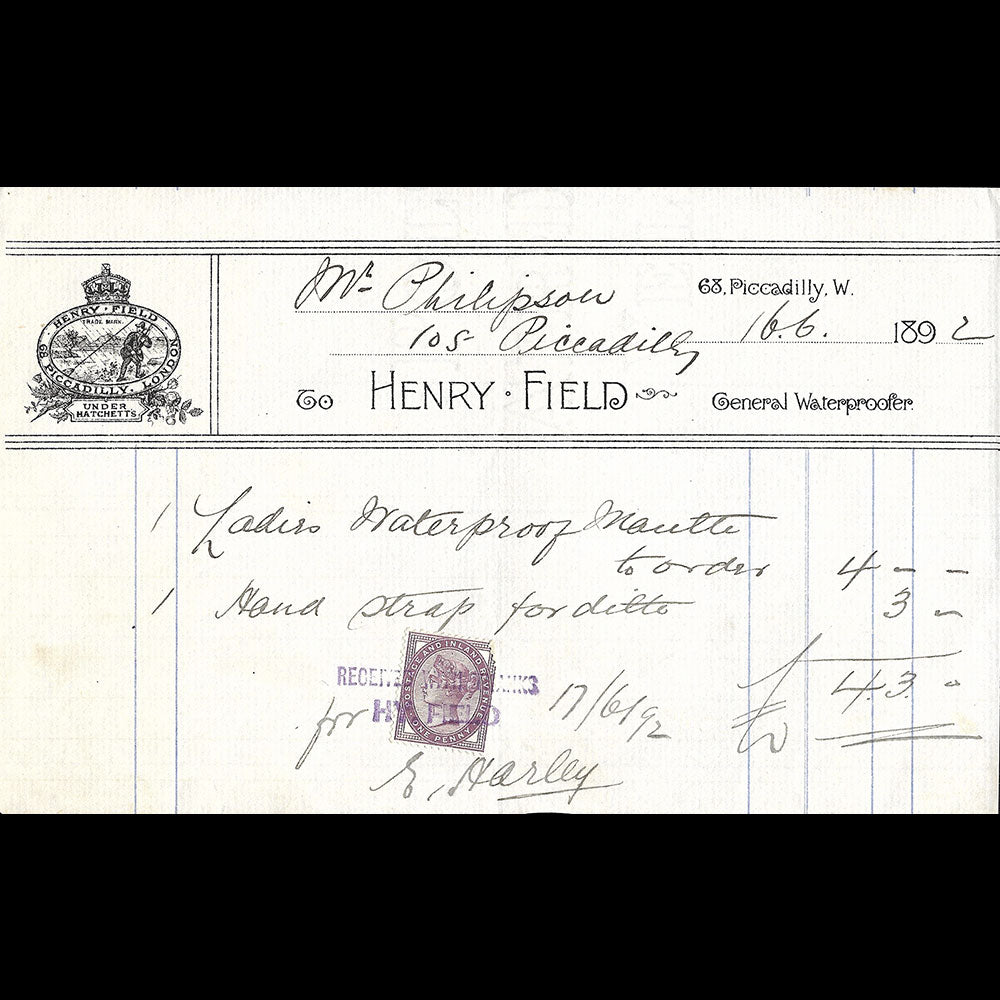 HENRY · FIELD ·
TRADE MARK.
68 PICCADILLY. LONDON
UNDER
HATCHETTS
Mr Philipson
68, Piccadilly, W.
105 Piccadilly
16.6. 1892
To HENRY · FIELD
General Waterproofer.
1 Ladies Waterproof Mantle
to order 4 - -
1 Hand strap for ditto 3 -
POSTAGE AND INLAND REVENUE
ONE PENNY
RECEIVED WITH THANKS
for HY FIELD 17/6/92
£ 4 3. -
E. Harley